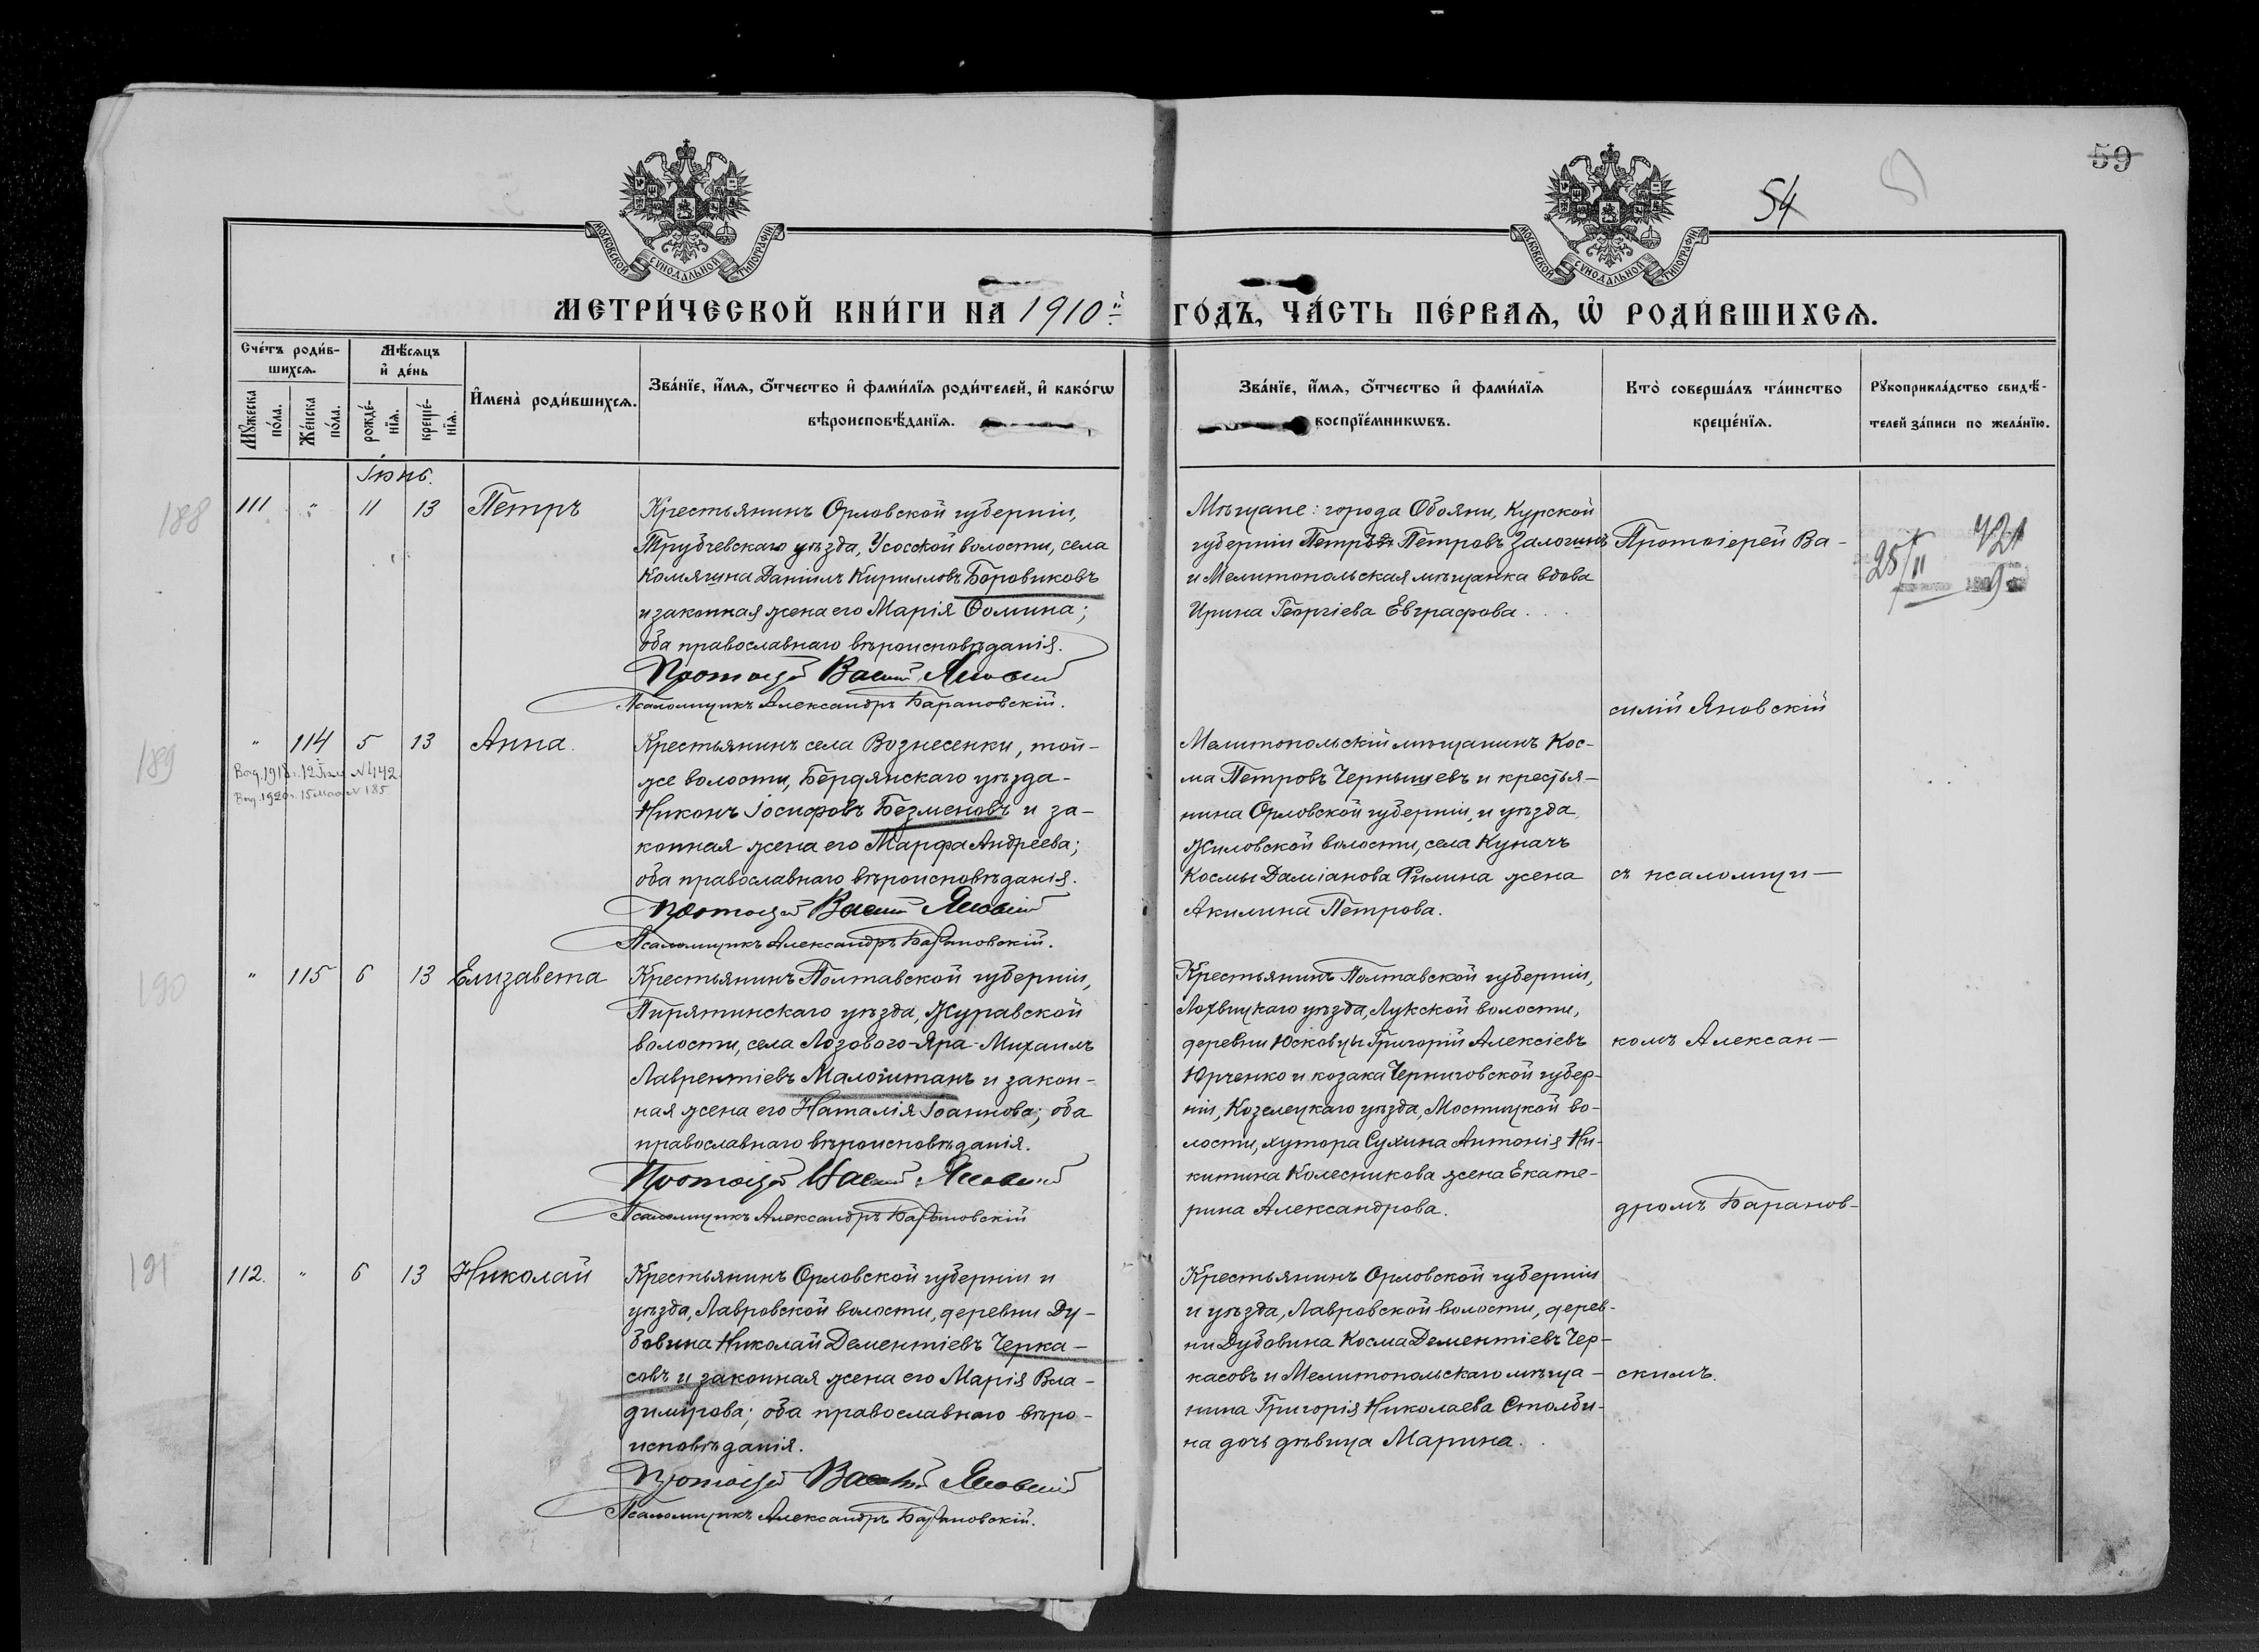 59
54
МОСКОВСКОЙ СѴНОДАЛЬНОЙ ТИПОГРАФІИ
МОСКОВСКОЙ СѴНОДАЛЬНОЙ ТИПОГРАФІИ
МЕТРИ́ЧЕСКОЙ КНИ́ГИ НА 1910й ГО́ДЪ, ЧА́СТЬ ПЕ́РВАѦ, Ѡ҆ РОДИ́ВШИХСѦ.
Сче́тъ роди́в-
шихсѧ.
Мѣ́сѧцъ
и҆ де́нь
Мꙋ́жеска
по́ла.
Же́нска
по́ла.
рожде́-
нїѧ.
креще́-
нїѧ.
И҆мена̀ роди́вшихсѧ.
Зва́нїе, и҆́мѧ, ѻ҆́тчество и҆ фами́лїѧ роди́телей, и҆ како́гѡ
вѣроисповѣ́данїѧ.
Зва́нїе, и҆́мѧ, ѻ҆́тчество и҆ фами́лїѧ
воспрїе́мникѡвъ.
Кто̀ соверша́лъ та́инство
креще́нїѧ.
Рꙋкоприкла́дство свидѣ́-
телей за́писи по жела́нїю.
Іюнь.
188
111 " 11 13 Петръ
Крестьянинъ Орловской губерніи,
Трубчевскаго уѣзда, Усосской волости, села
Комягина Даніилъ Кирилловъ Боровиковъ
и законная жена его Марія Ѳомина;
оба православнаго вѣроисповѣданія.
Протоіерей Василій Яновскій
Псаломщикъ Александръ Барановскій.
Мѣщане: города Обояни, Курской
губерніи Петръ Петровъ Залогинъ
и Мелитопольская мѣщанка вдова
Ирина Георгіева Евграфова.
Протоіерей Ва-
силій Яновскій
28/II
189
" 114 5 13 Анна
№ 442
№ 185
Крестьянинъ села Вознесенки, той-
же волости, Бердянскаго уѣзда-
Никонъ Іосифовъ Безменовъ и за-
конная жена его Марфа Андреева;
оба православнаго вѣроисповѣданія.
Протоіерей Василій Яновскій
Псаломщикъ Александръ Барановскій.
Мелитопольскій мѣщанинъ Кос-
ма Петровъ Чернышевъ и крестья-
нина Орловской губерніи, и уѣзда
Жиловской волости, села Куначъ
Космы Даміанова Филина жена
Акилина Петрова.
съ псаломщи-
190
" 115 6 13 Елизавета
Крестьянинъ Полтавской губерніи,
Пирятинскаго уѣзда, Журавской
волости, села Лозового-Яра-Михаилъ
Лаврентіевъ Малоштанъ и закон-
ная жена его Наталія Іоаннова; оба
православнаго вѣроисповѣданія.
Протоіерей Василій Яновскій
Псаломщикъ Александръ Барановскій
Крестьянинъ Полтавской губерніи,
Лохвицкаго уѣзда, Лукской волости,
деревни Юсковцы Григорій Алексіевъ
Юрченко и козака Черниговской губер-
ніи, Козелецкаго уѣзда, Мостицкой во-
лости, хутора Сухина Антонія Ни-
китина Колесникова жена Екате-
рина Александрова.
комъ Алексан-
дромъ Баранов-
191
112. " 6 13 Николай
Крестьянинъ Орловской губерніи и
уѣзда, Лавровской волости, деревни Ду-
бовина Николай Дементіевъ Черка-
совъ и законная жена его Марія Вла-
димірова; оба православнаго вѣро-
исповѣданія.
Протоіерей Василій Яновскій
Псаломщикъ Александръ Барановскій.
Крестьянинъ Орловской губерніи
и уѣзда, Лавровской волости, дерев-
ни Дубовина Косма Дементіевъ Чер-
касовъ и Мелитопольскаго мѣща-
нина Григорія Николаева Столби-
на дочь дѣвица Марина.
скимъ.